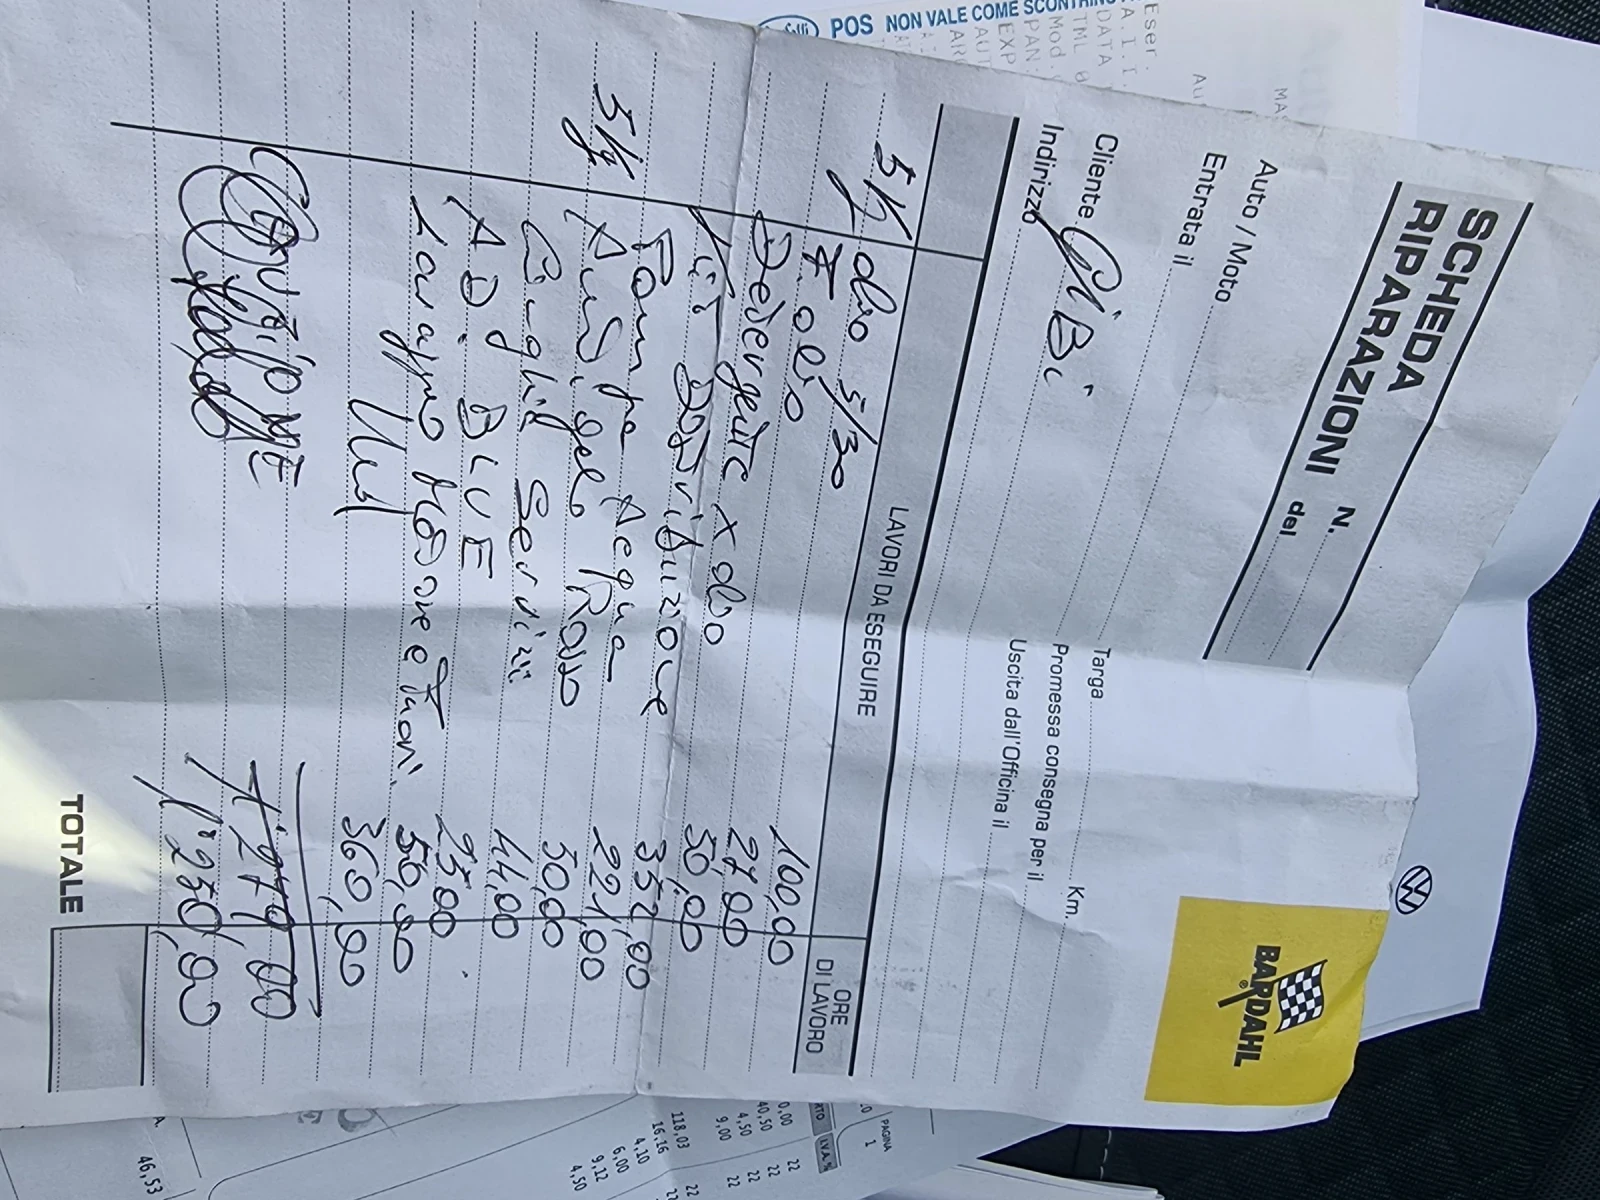 POS NON VALE COME SCONTRINO
SCHEDA
RIPARAZIONI
N.
del
BARDAHL
Auto / Moto
Entrata il
Cliente GIBi
Indirizzo
Targa
Km.
Promessa consegna per il
Uscita dall'Officina il
LAVORI DA ESEGUIRE
ORE
DI LAVORO
olio 5/30 100,00
F. olio 27,00
Detergente x olio 30,00
Kit Distribuzione 352,00
Pompa Acqua 221,00
Antigel Rosso 50,00
Cinghia Servizi 44,00
AD. BLUE 25,00
Lavaggio Motore e Fuori 50,00
360,00
1'279,00
1'250,00
TOTALE
PAGINA
1
I.V.A. %
22
40,50 22
4,50 22
9,00 22
118,03 22
16,16 22
4,10
6,00
9,12
4,50
46,53